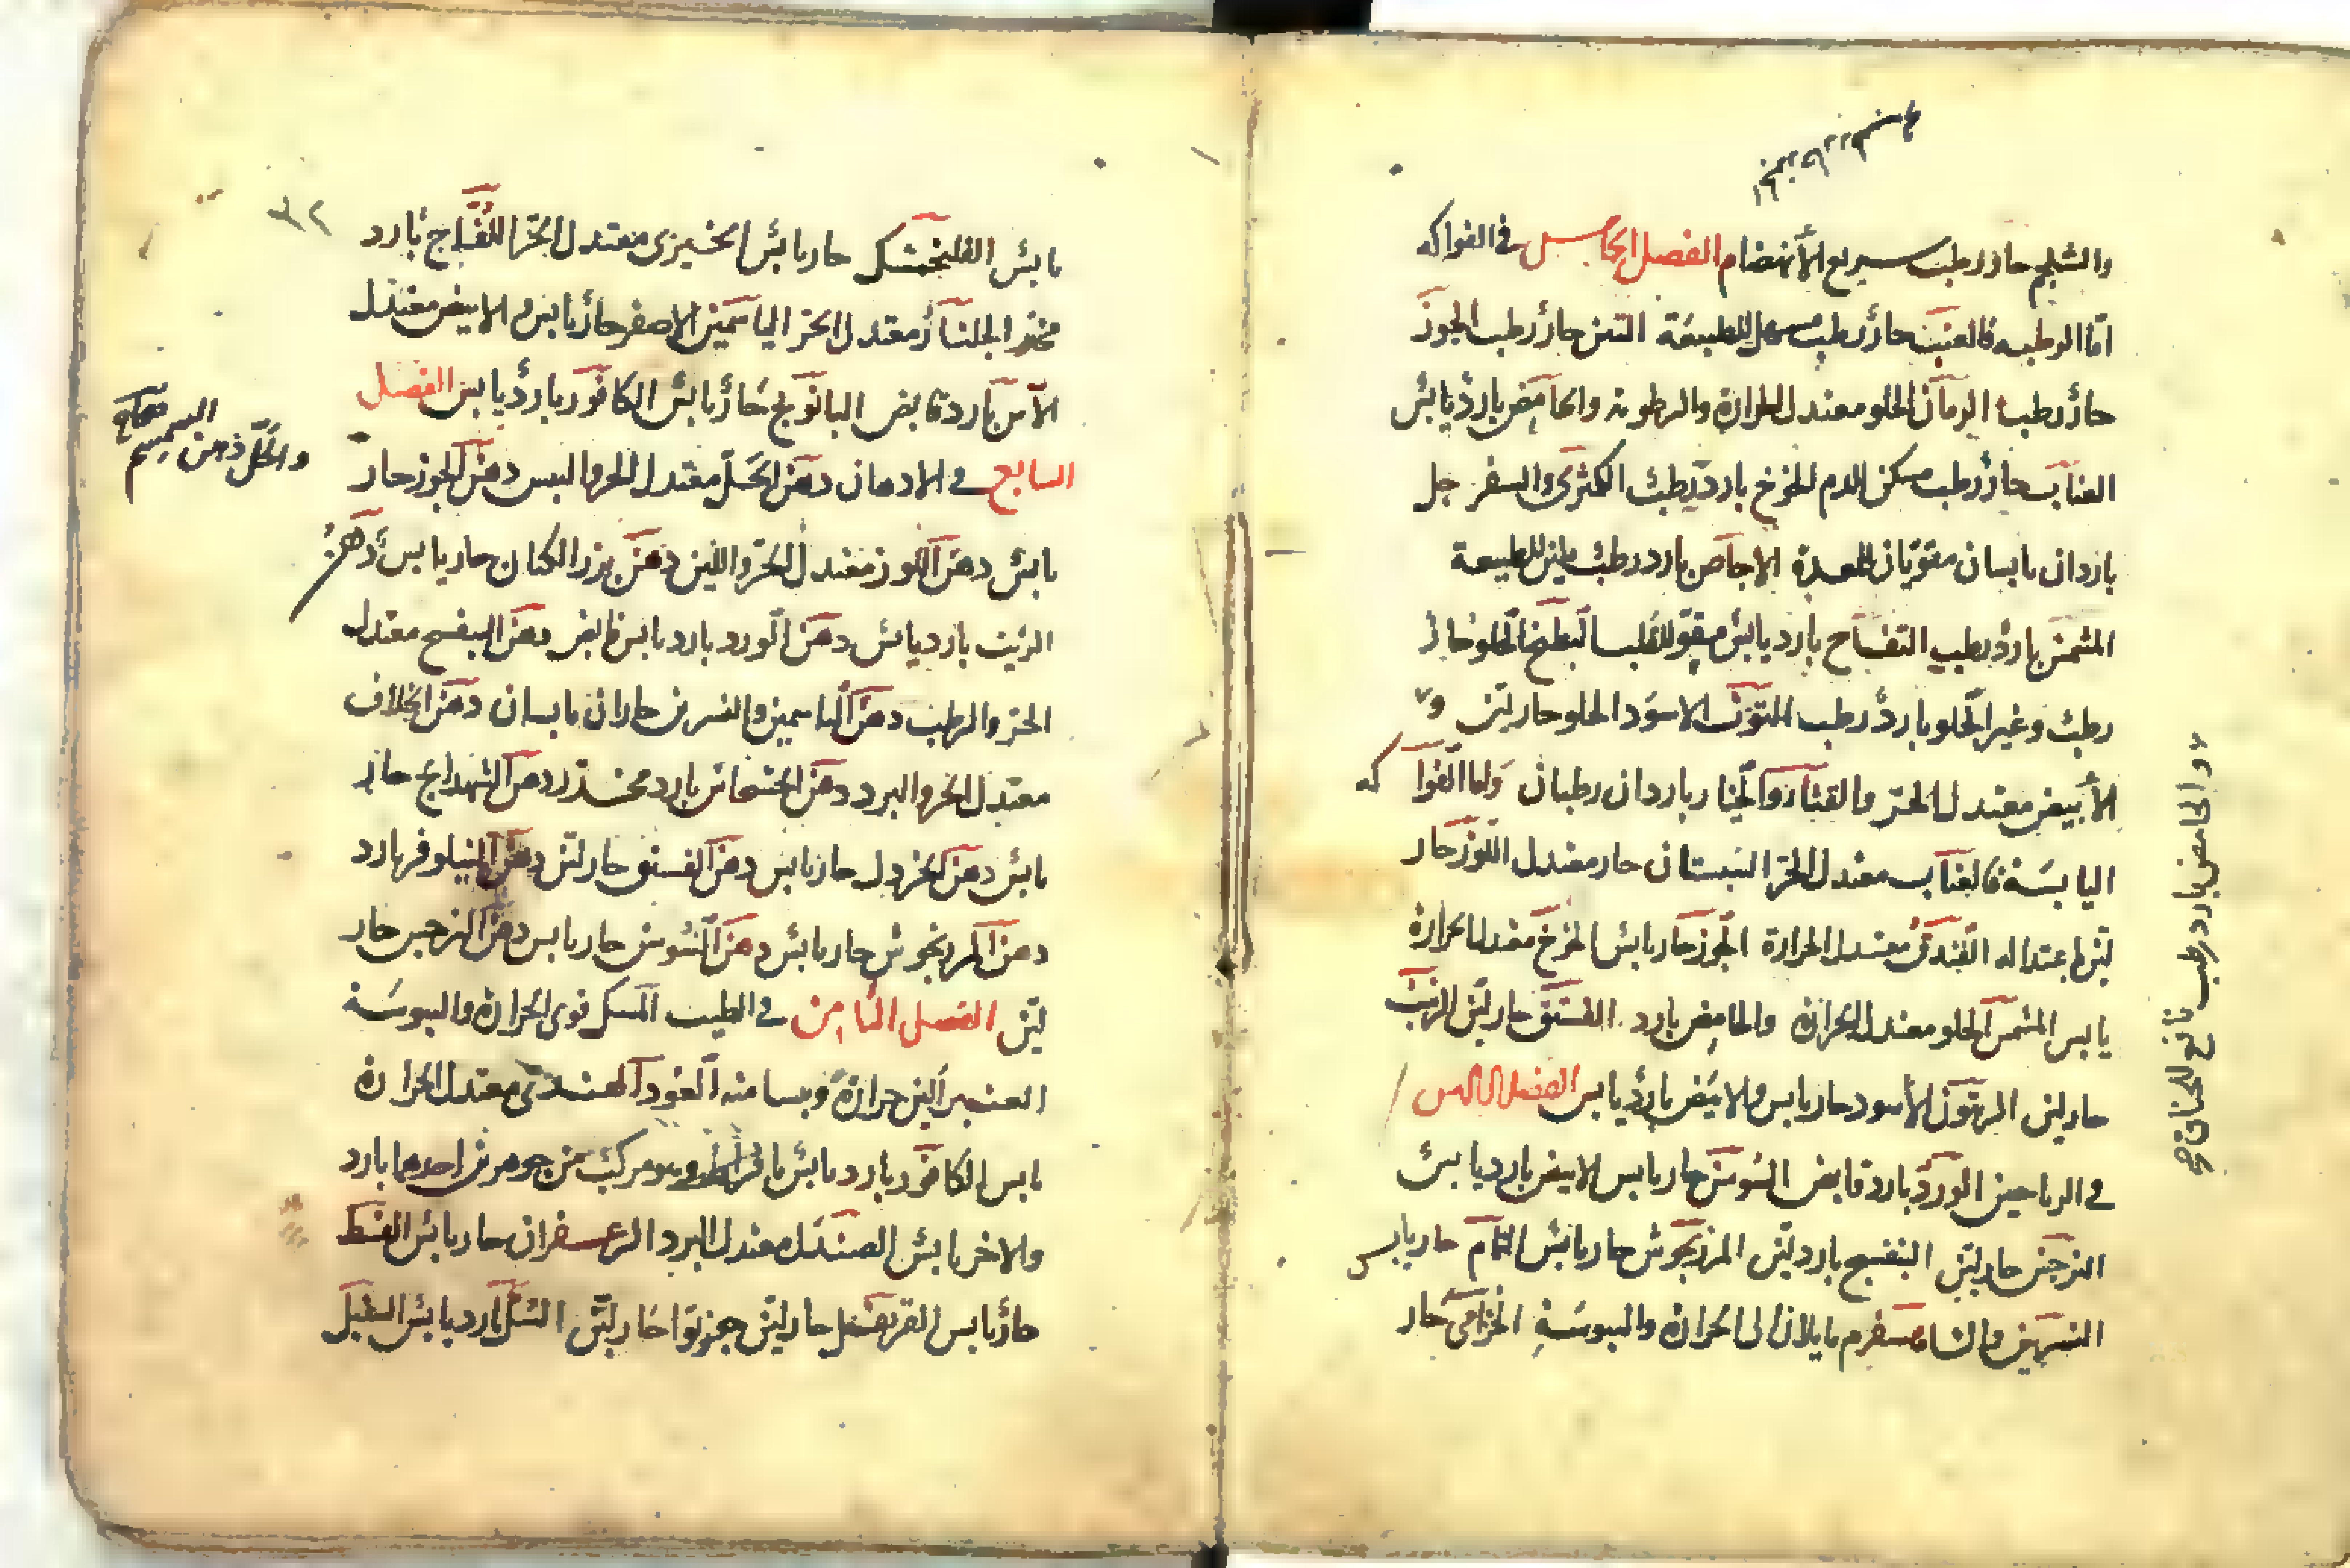 والشلجم حار رطب سريع الأنهضام الفصل الخامس في الفواكه
امّا الرطبه فالعنب حار رطب مسهل للطبيعة التين حار رطب الجوز
حار رطب الرمان الحلو معتدل الحرارة والرطوبة والحامض بارد يابس
العناب حار رطب مسكن الدم الخوخ بارد رطب الكمثرى والسفرجل
باردان يابسان مقويان للمعدة الاجاص بارد رطب ملين للطبيعة
المشمش بارد رطب التفاح بارد يابس مقو للقلب البطيخ الحلو حار
رطب وغير الحلو بارد رطب التوث الاسود الحلو حار لين
الأبيض معتدل الحر والقثاء والخيار باردان رطبان واما الفواكه
اليابسة فالعناب معتدل الحر السبستان حار معتدل اللوز حار
لين باعتداله البندق معتدل الحرارة الجوز حار يابس الخوخ معتدل الحرارة
يابس المشمش الحلو معتدل الحرارة والحامض بارد الفستق حار لين الزبيب
حار لين الزيتون الأسود حار يابس والابيض بارد يابس الفصل السادس
في الرياحين الورد بارد قابض السوسن حار يابس الابيض بارد يابس
النرجس حار لين البنفسج بارد لين المرزنجوش حار يابس النمام حار يابس
النسرين والشاهسفرم مايلان الى الحرارة واليبوسة الخزامى حار
والحامض بارد رطب نافع للخناق صح
يابس الفلنجمشك حار يابس الخيرى معتدل الحر اللفاح بارد
مخدر الجلنار معتدل الحر الياسمين الاصفر حار يابس والابيض معتدل
الآس بارد قابض البابونج حار يابس الكافور بارد يابس الفصل
السابع في الادهان دهن الحل معتدل الحر واليبس دهن الجوز حار
والحل دهن السمسم
يابس دهن اللوز معتدل الحر واللين دهن بزر الكتان حار يابس دهن
الزيت بارد يابس دهن الورد بارد يابس قابض دهن البنفسج معتدل
الحر والرطب دهن الياسمين والنسرين حاران يابسان دهن الخلاف
معتدل الحر والبرد دهن الخشخاش بارد مخدر دهن الشهدانج حار
يابس دهن الخردل حار يابس دهن الفستق حار لين دهن النيلوفر بارد
دهن المرزنجوش حار يابس دهن السوسن حار يابس دهن النرجس حار
لين الفصل الثامن في الطيب المسك قوى الحرارة واليبوسة
العنبر الين حرارة ويبسا منه العود الهندى معتدل الحرارة
يابس الكافور بارد يابس بافراط وهو مركب من جوهرين احدهما بارد
والاخر يابس الصندل معتدل البرد الزعفران حار يابس القسط
حار يابس القرنفل حار لين جوزبوا حار لين السك بارد يابس السنبل